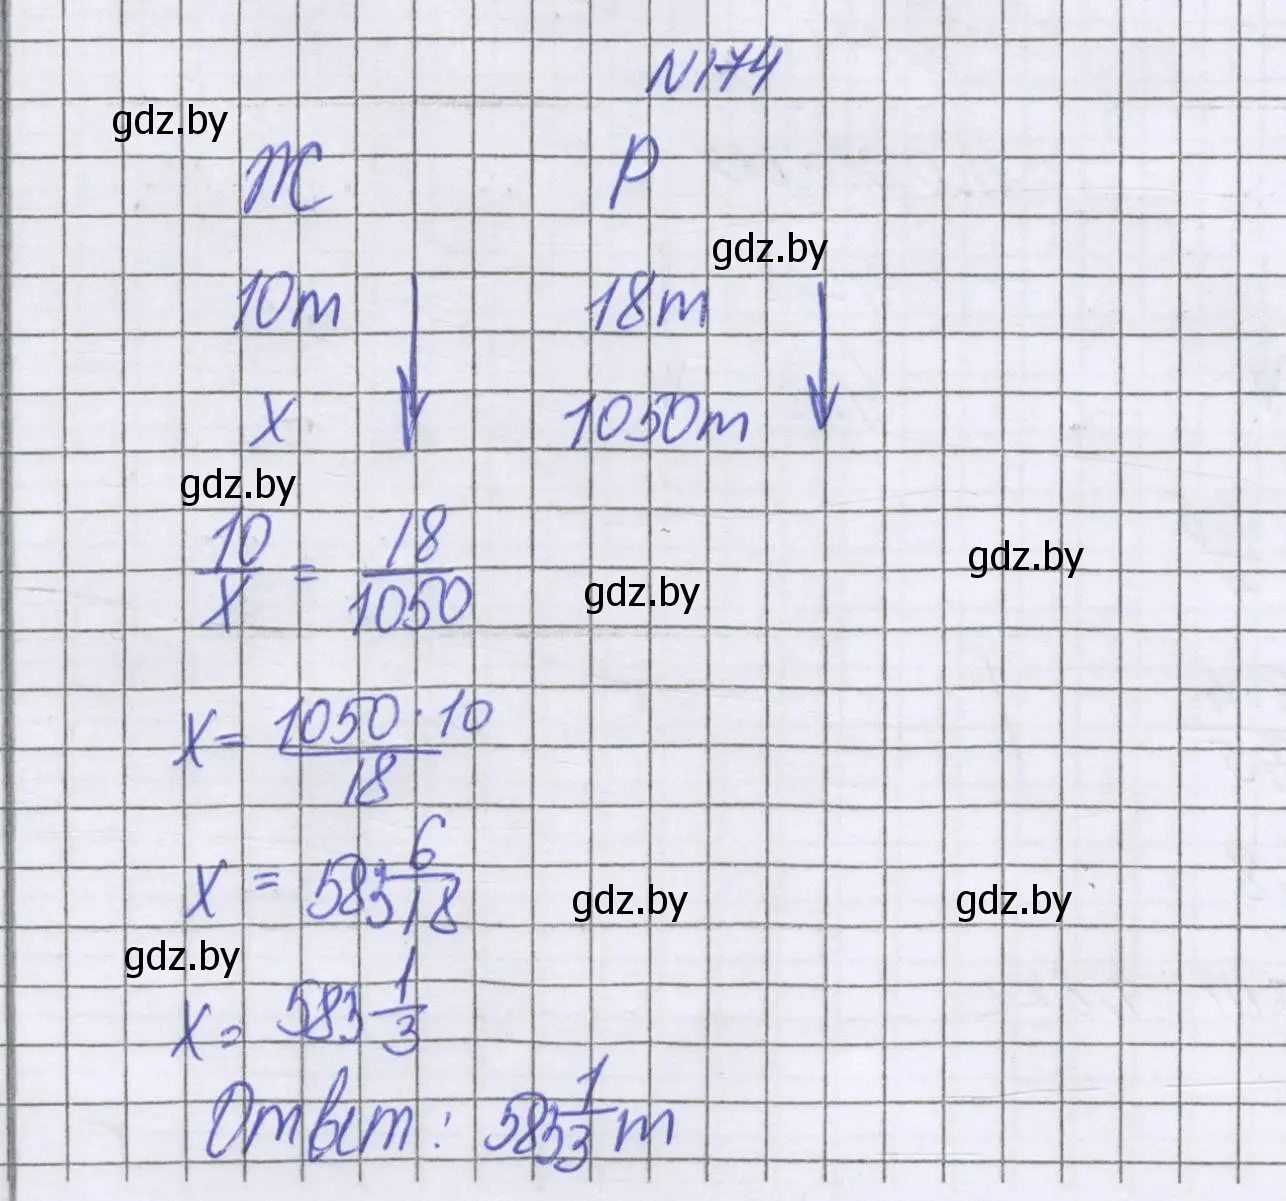 N174
gdz.by
Ж Р
gdz.by
10т 18т
x 1050т
gdz.by
10/x = 18/1050
gdz.by
gdz.by
x = 1050·10/18
x = 583 6/18
gdz.by
gdz.by
gdz.by
x = 583 1/3
Ответ: 583 1/3 т